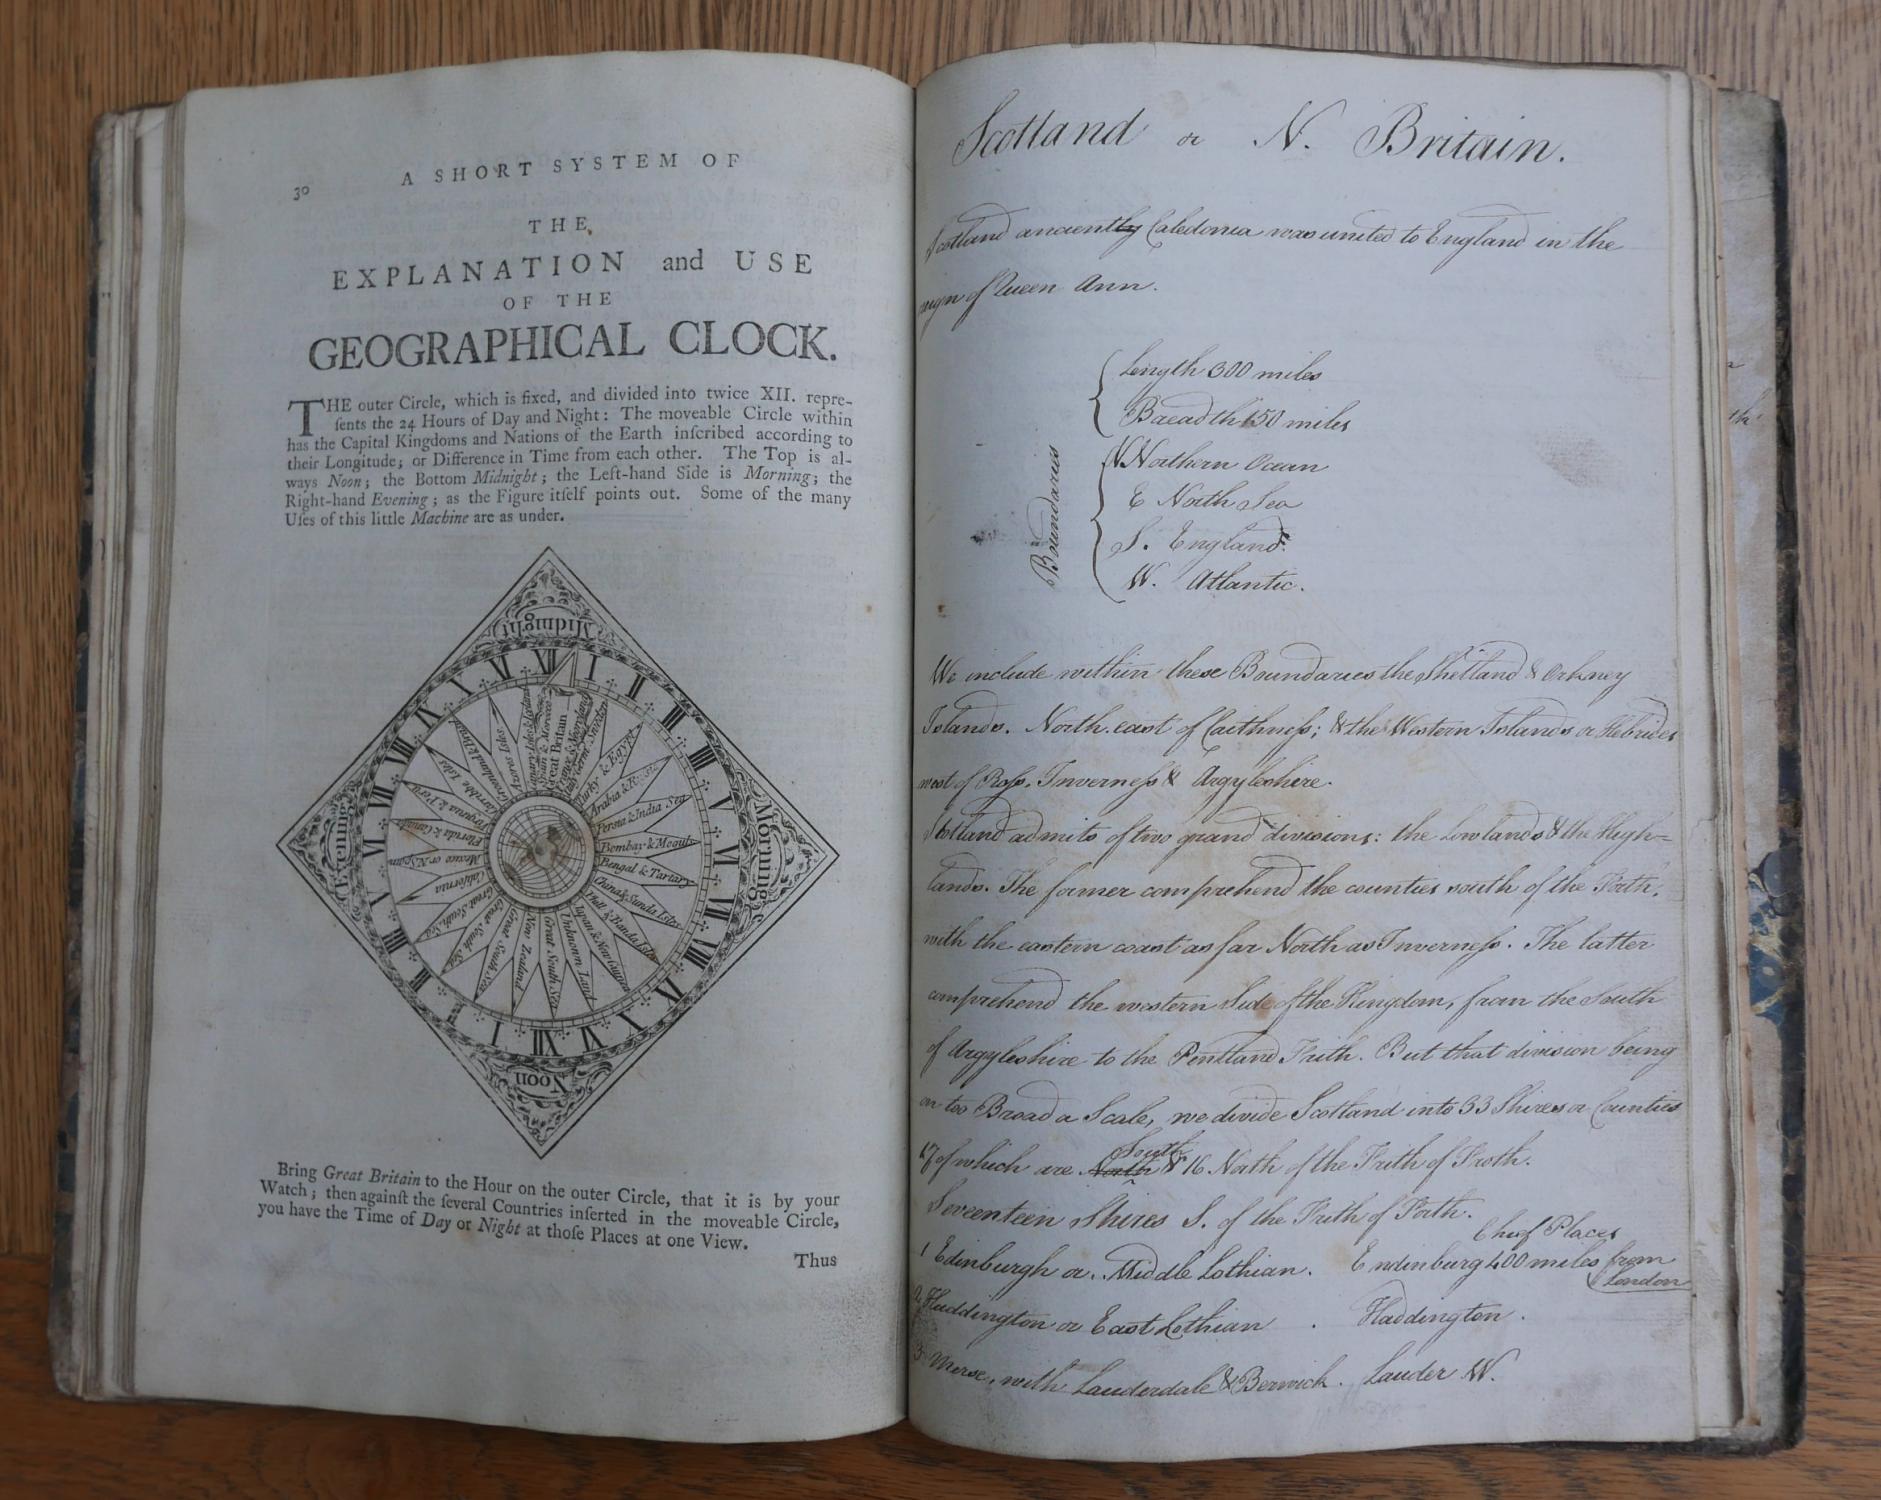 A SHORT SYSTEM OF
30
THE
EXPLANATION and USE
OF THE
GEOGRAPHICAL CLOCK.
THE outer Circle, which is fixed, and divided into twice XII. repre-
ſents the 24 Hours of Day and Night: The moveable Circle within
has the Capital Kingdoms and Nations of the Earth inſcribed according to
their Longitude; or Difference in Time from each other. The Top is al-
ways Noon; the Bottom Midnight; the Left-hand Side is Morning; the
Right-hand Evening; as the Figure itſelf points out. Some of the many
Uſes of this little Machine are as under.
Midnight
Morning
Noon
Evening
XII
I
II
III
IIII
V
VI
VII
VIII
IX
X
XI
XII
I
II
III
IIII
V
VI
VII
VIII
IX
X
XI
Great Britain
Turky & Egypt
Arabia & Russia
Persia & India Sea
Bombay & Moguls
Bengal & Tartary
China & Sunda Isles
Phil. & Banda Isles
Japan & New Guinea
Unknown Land
Great South Sea
New Zealand
Great South Sea
Great South Sea
Great South Sea
California
Mexico or N. Spain
Florida & Canada
Virginia & Peru
Carribbe Isles
Greenland & Brasil
Azores Isles
Bring Great Britain to the Hour on the outer Circle, that it is by your
Watch; then againſt the ſeveral Countries inſerted in the moveable Circle,
you have the Time of Day or Night at thoſe Places at one View.
Thus
Scotland or N. Britain.
Scotland anciently Caledonia was united to England in the
reign of Queen Ann.
Length 300 miles
Breadth 150 miles
Boundaries
N. Northern Ocean
E North Sea
S. England.
W. Atlantic.
We include within these Boundaries the Shetland & Orkney
Islands. North east of Caithneſs; & the Western Islands or Hebrides
west of Roſs, Inverneſs & Argyleshire.
Scotland admits of two grand divisions: the Lowlands & the High=
lands. The former comprehend the counties south of the Forth,
with the eastern coast as far North as Inverneſs. The latter
comprehend the western Side of the Kingdom, from the South
of Argyleshire to the Pentland Frith. But that division being
on too Broad a Scale, we divide Scotland into 33 Shires or Counties
South
17 of which are North & 16 North of the Frith of Froth.
Seventeen Shires S. of the Frith of Forth.
Chief Places
1 Edinburgh or Middle Lothian. Endinburg 400 miles from
London
2 Haddington or East Lothian . Haddington .
3 Merse, with Lauderdale & Berwick. Lauder W.